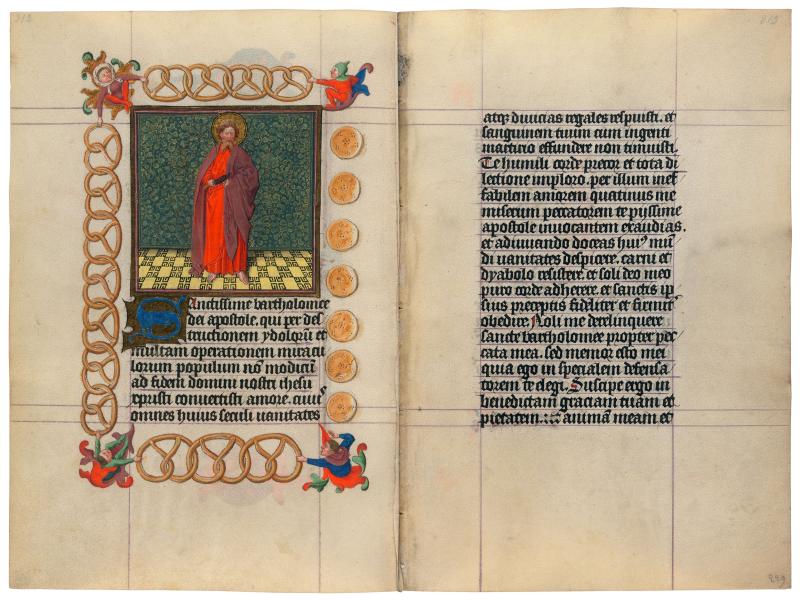 Sanctissime bartholomee
dei apostole, qui per des
tructionem ydolorū et
multam operationem miracu
lorum populum nō modicū
ad fidem domini nostri ihesu
cristi convertisti amore. cuius
omnes huius seculi vanitates
atq; divicias regales respuisti. et
sanguinem tuum cum ingenti
martirio effundere non timuisti.
Te humili corde precor et tota di
lectione imploro. per illum inef
fabilem amorem quatinus me
miserum peccatorem te pijssime
apostole invocantem exaudias.
et adiuvando doceas huiꝰ mū
di vanitates despicere. carni et
dyabolo resistere et soli deo meo
puro corde adherere. et sanctis ip
sius preceptis fideliter et firmit
obedire. Noli me derelinquere
sancte bartholomee propter pec
cata mea. sed memor esto mei
quia ego in specialem defensa
torem te elegi. Suscipe ergo in
benedictam graciam tuam et
pietatem. animam meam et